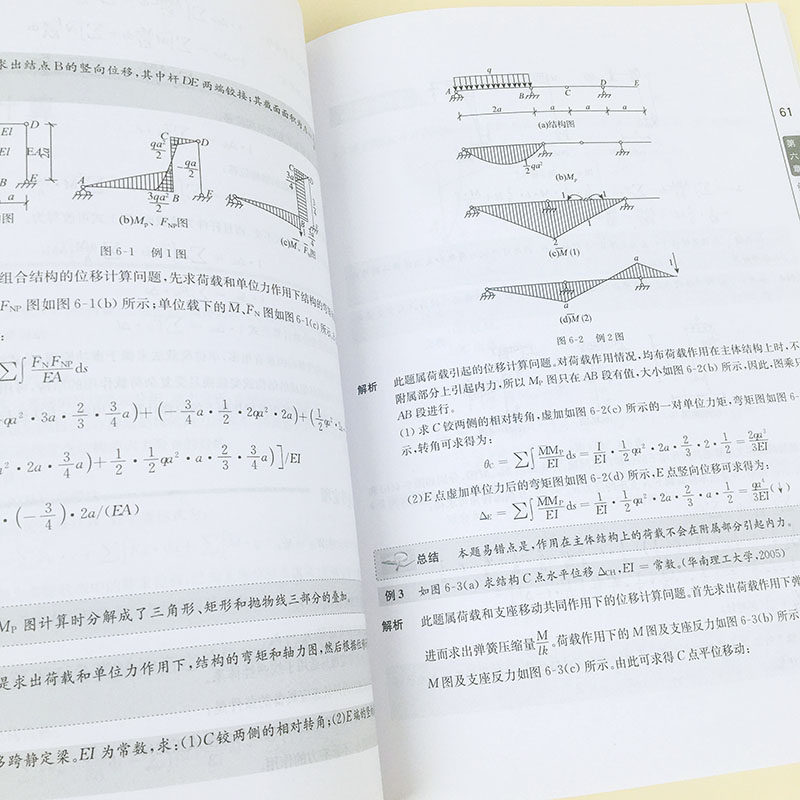 求出结点B的竖向位移,其中杆DE两端铰接;其截面面积为
EI
D
EI
EA
2a
B
E
C
D
qa²/2
qa²/2
A
3qa²/2
B
E
A
C
B
图
(b)Mₚ、F_NP图
(c)M、F_N图
图 6-1 例 1 图
组合结构的位移计算问题,先求荷载和单位力作用下结构的弯矩
F_NP 图如图 6-1(b) 所示;单位载下的 M、F_N 图如图 6-1(c) 所示
:
∑∫ F_N F_NP/EA ds
qa² · 3a · 2/3 · 3/4 a) + (− 3/4 a · 1/2 · 2qa² · 2a) + (1/2 qa² · 2a
a² · 2a · 3/4 a) + 1/2 · 1/2 qa² · a · 2/3 · 3/4 a)]/EI
· (− 3/4) · 2a/(EA)
Mₚ 图计算时分解成了三角形、矩形和抛物线三部分的叠加。
是求出荷载和单位力作用下,结构的弯矩和轴力图,然后根据位移
多跨静定梁。EI 为常数,求:(1)C 铰两侧的相对转角;(2)E 端的竖向
61
第六章
q
A
B
C
D
E
2a
a
a
a
(a)结构图
1/2 qa²
(b)Mₚ
1
1
2
(c)M̄ (1)
a
a
1
(d)M̄ (2)
图 6-2 例 2 图
解析 此题属荷载引起的位移计算问题。对荷载作用情况,均布荷载作用在主体结构上时,不
附属部分上引起内力,所以 Mₚ 图只在 AB 段有值,大小如图 6-2(b) 所示,因此,图乘只
AB 段进行。
(1) 求 C 铰两侧的相对转角,虚加如图 6-2(c) 所示的一对单位力矩,弯矩图如图 6-
示,转角可求得为:
θ_C = ∑∫ M̄Mₚ/EI ds = 1/EI · 1/2 qa² · 2a · 2/3 · 2 · 1/2 = 2qa³/3EI
(2)E 点虚加单位力后的弯矩图如图 6-2(d) 所示,E 点竖向位移可求得为:
Δ_E = ∑∫ M̄Mₚ/EI ds = 1/EI · 1/2 qa² · 2a · 2/3 · a · 1/2 = qa⁴/3EI (↓)
总结 本题易错点是,作用在主体结构上的荷载不会在附属部分引起内力。
例 3 如图 6-3(a) 求结构 C 点水平位移 Δ_CH,EI = 常数。(华南理工大学,2005)
解析 此题属荷载和支座移动共同作用下的位移计算问题。首先求出荷载作用下弹
进而求出弹簧压缩量 M/lk。荷载作用下的 M 图及支座反力如图 6-3(b) 所示
M 图及支座反力如图 6-3(c) 所示。由此可求得 C 点平位移动: